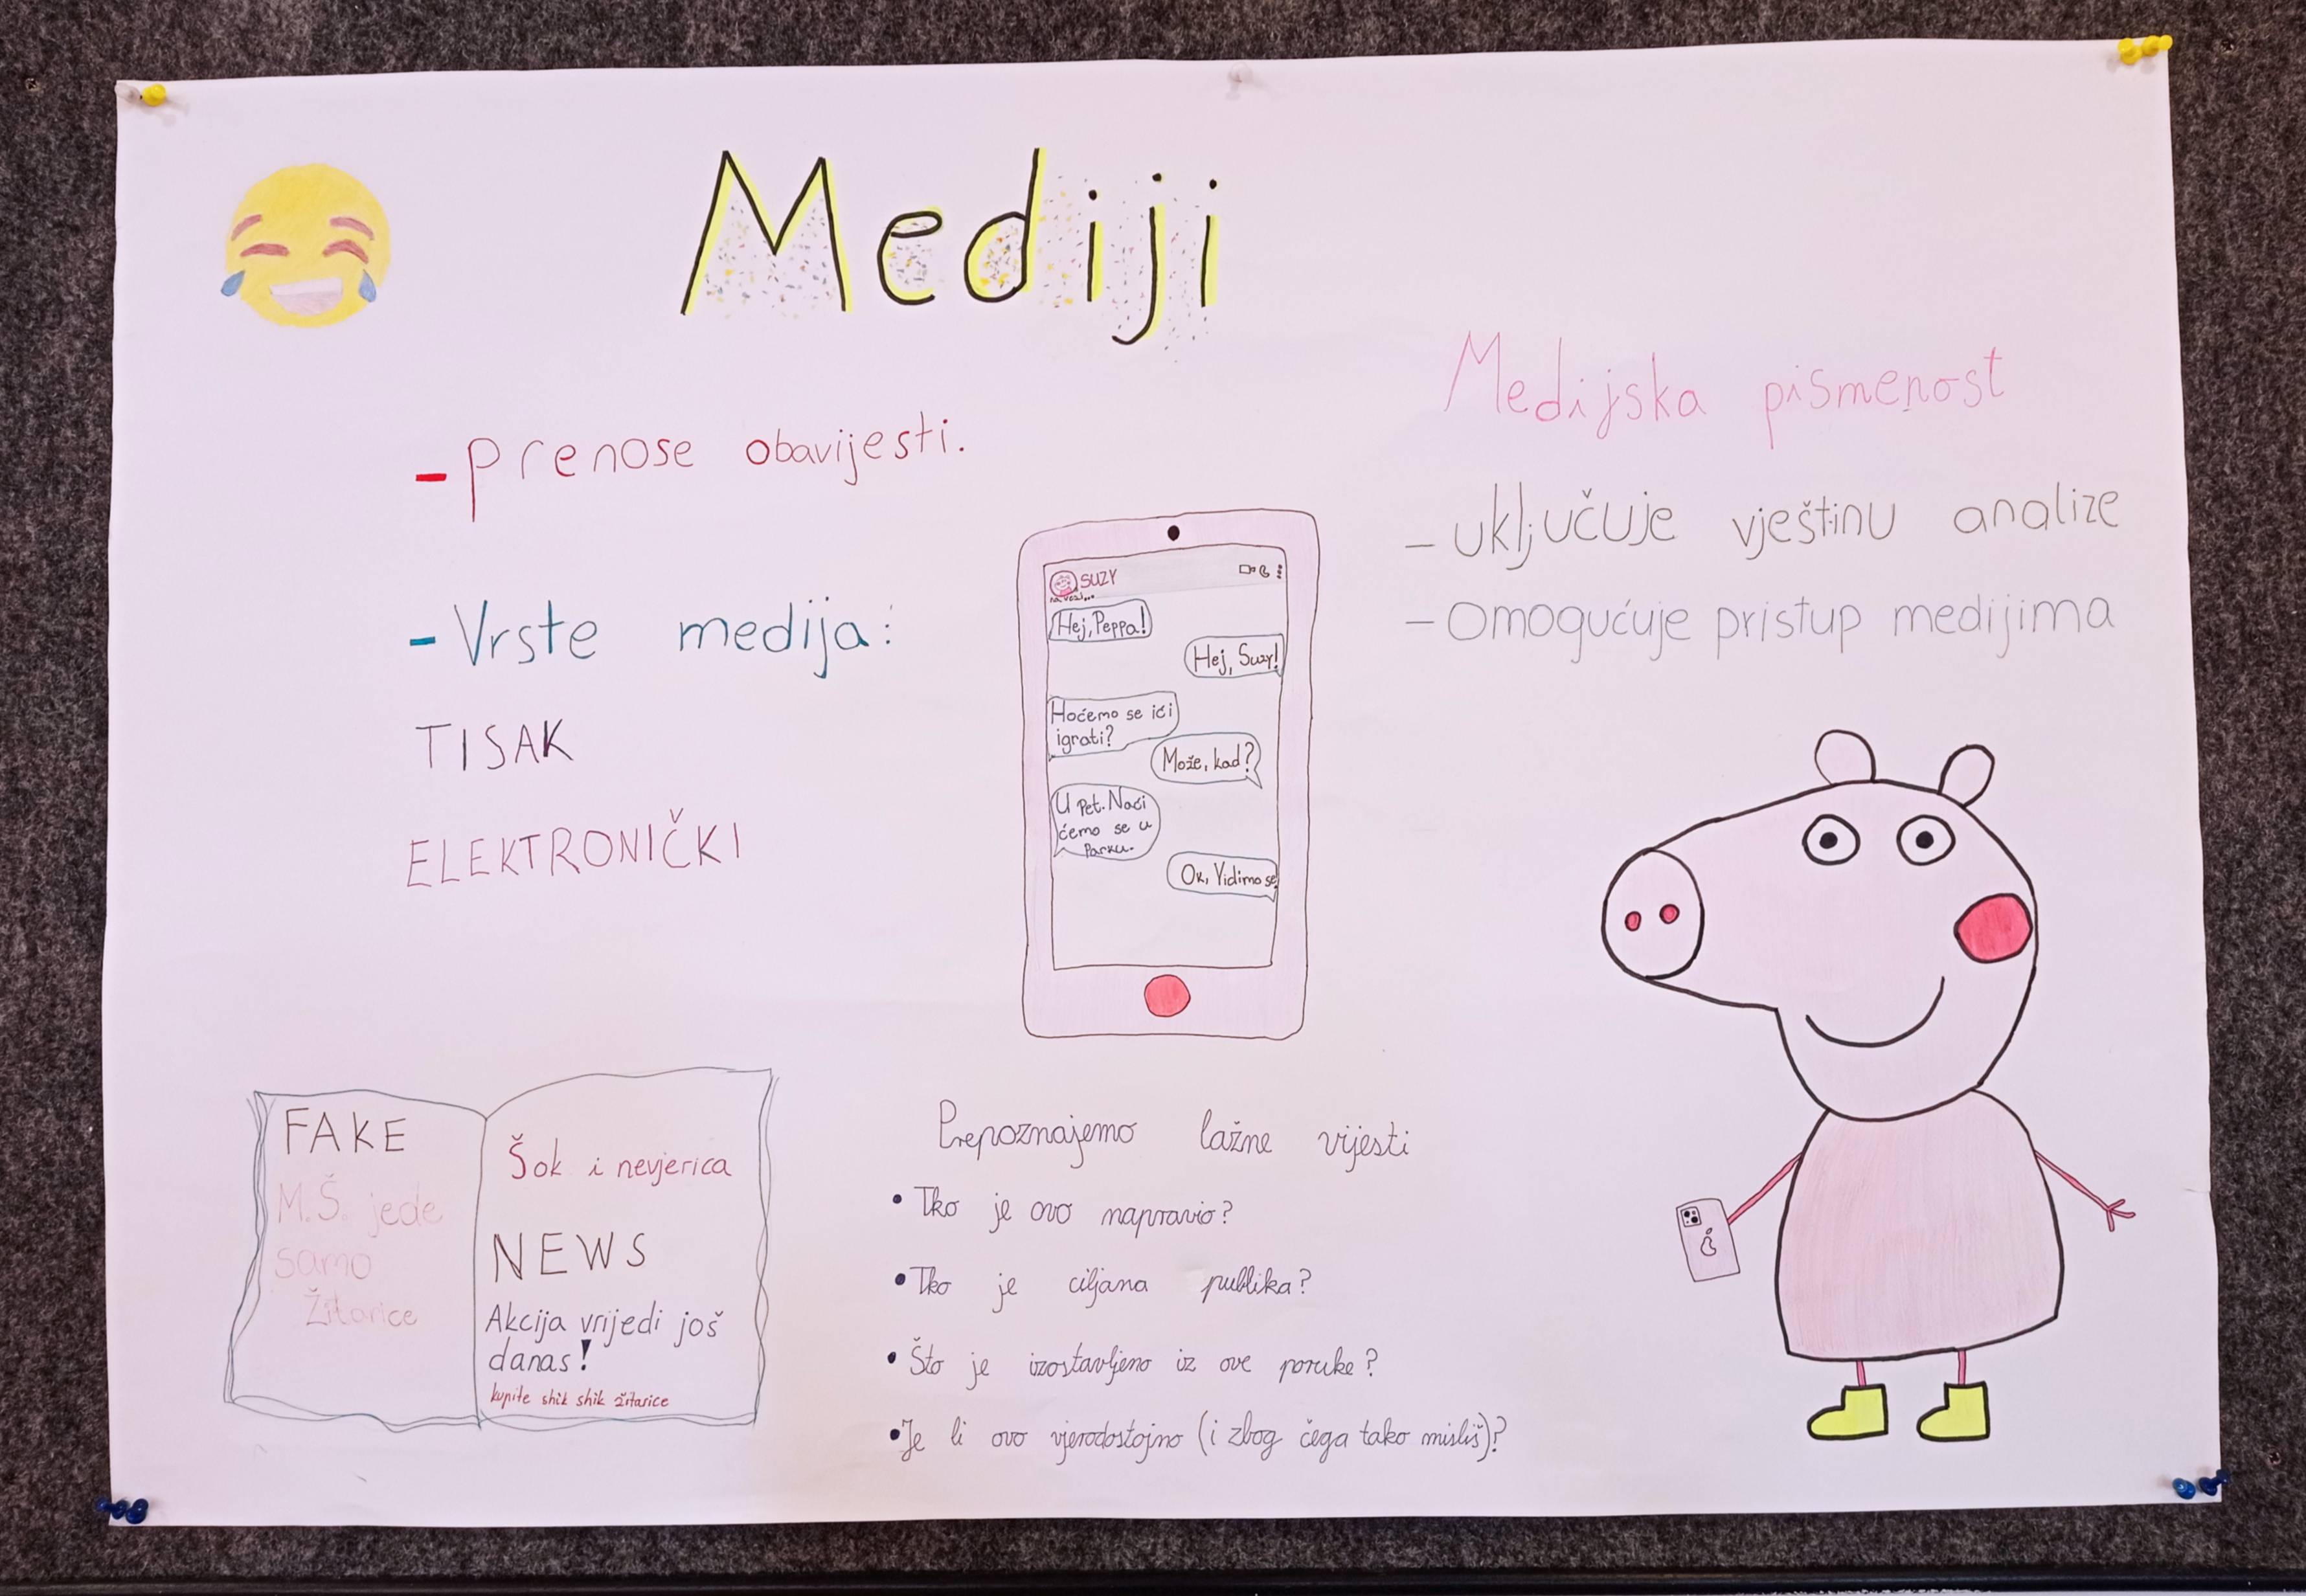 Mediji
-prenose obavijesti.
-Vrste medija:
TISAK
ELEKTRONIČKI
SUZY
na vezi...
Hej, Peppa!
Hej, Suzy!
Hoćemo se ići
igrati?
Može, kad?
U pet. Naći
ćemo se u
Parku.
Ok, Vidimo se
Medijska pismenost
- uključuje vještinu analize
- omogućuje pristup medijima
FAKE
M.Š. jede
samo
Žitarice
Šok i nevjerica
NEWS
Akcija vrijedi još
danas!
kupite shik shik žitarice
Prepoznajemo lažne vijesti
• Tko je ovo napravio?
• Tko je ciljana publika?
• Što je izostavljeno iz ove poruke?
• Je li ovo vjerodostojno (i zbog čega tako misliš)?